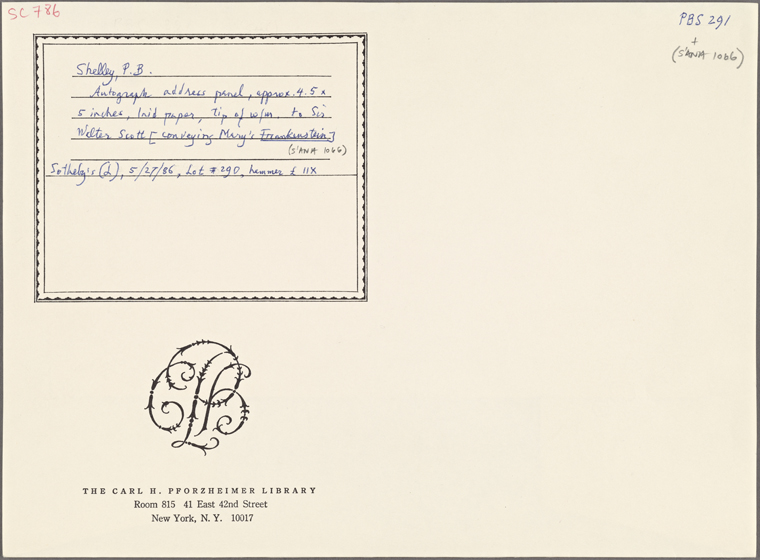 SC 786
PBS 291
+
(S'ANA 1066)
Shelley, P.B.
Autograph address panel, approx. 4.5 x
5 inches, laid paper, tip of w/m. to Sir
Walter Scott [conveying Mary's Frankenstein]
(S'ANA 1066)
Sotheby's (L), 5/27/86, Lot #290, hammer £ 11X
THE CARL H. PFORZHEIMER LIBRARY
Room 815 41 East 42nd Street
New York, N. Y. 10017